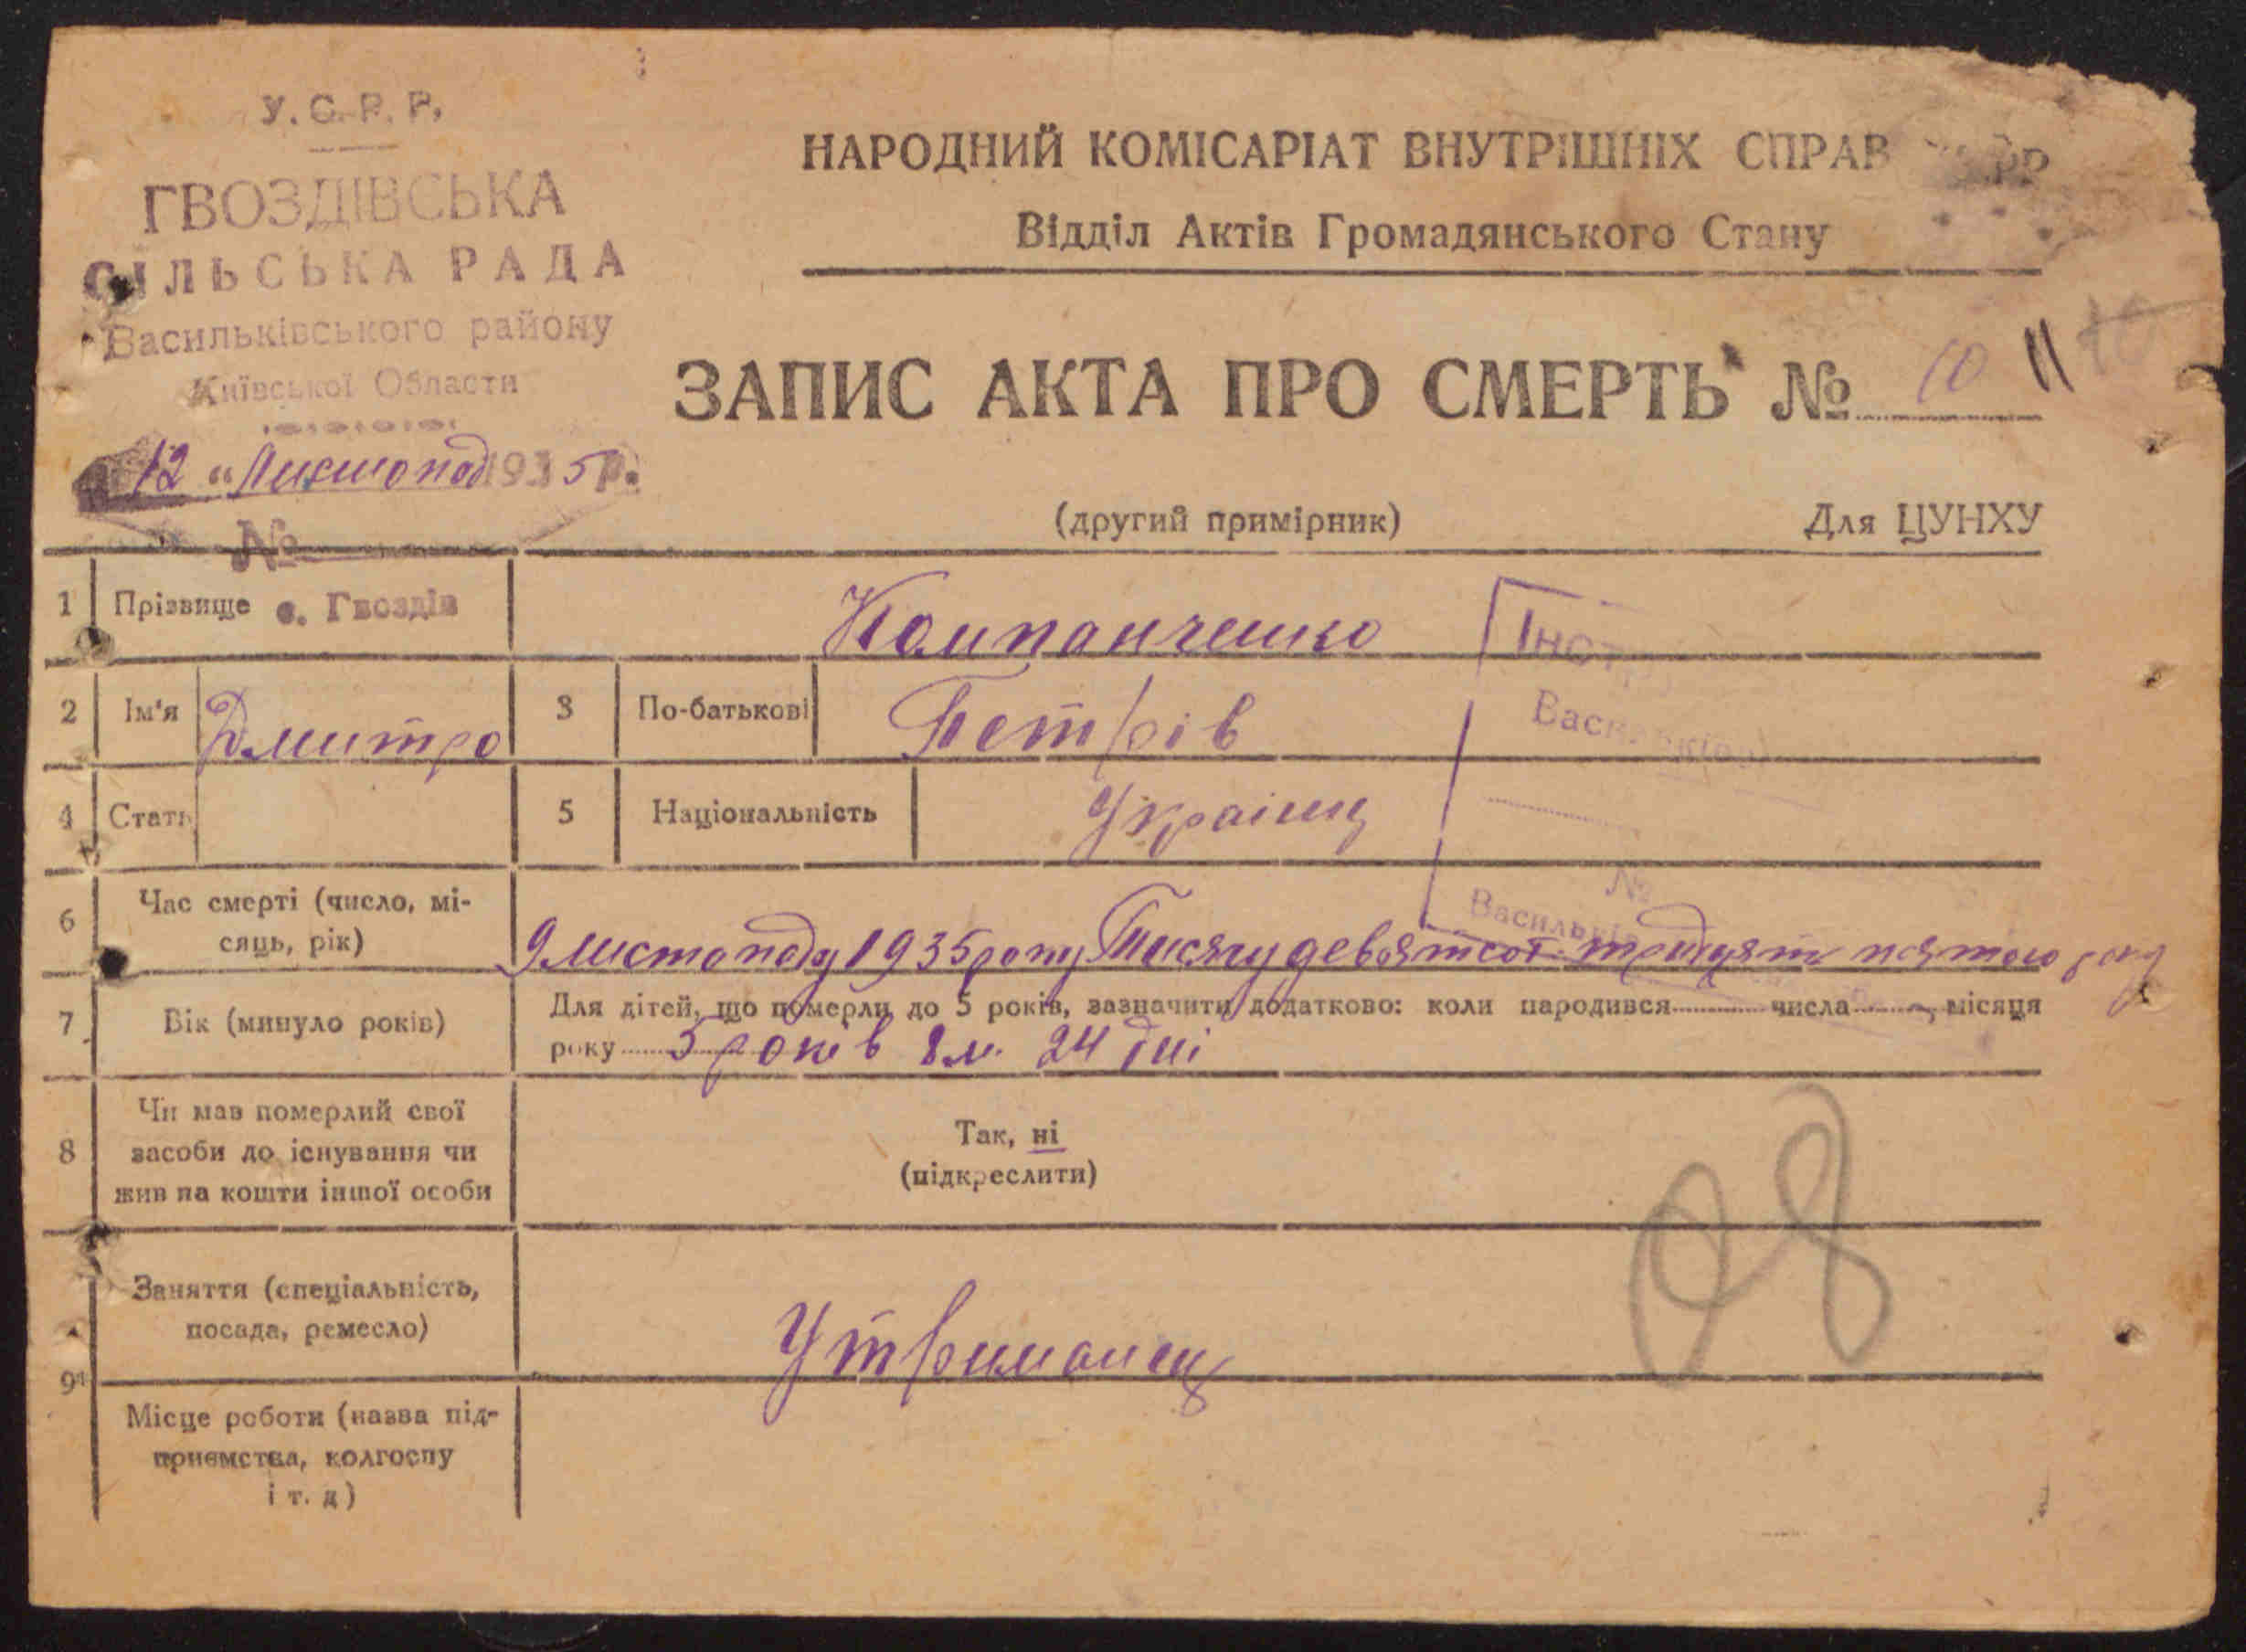 У.С.Р.Р.
ГВОЗДІВСЬКА
СІЛЬСЬКА РАДА
Васильківського району
Київської Области
12 " Листопад 1935 р.
№
с. Гвоздів
НАРОДНИЙ КОМІСАРІАТ ВНУТРІШНІХ СПРАВ
Відділ Актів Громадянського Стану
ЗАПИС АКТА ПРО СМЕРТЬ № 10 11
(другий примірник) Для ЦУНХУ
1 Прізвище Компанченко
2 Ім'я Дмитро 3 По-батькові Петрів
4 Стать 5 Національність Українц
6 Час смерті (число, мі-
сяць, рік) 9 листопаду 1935 року Тисячу девятсот тридцять пятого року
7 Вік (минуло років) Для дітей, що померли до 5 років, зазначити додатково: коли народився числа місяця
року 5 років 8 м. 24 дні
8 Чи мав померлий свої
засоби до існування чи
жив на кошти іншої особи
Так, ні
(підкреслити)
9 Заняття (спеціальність,
посада, ремесло) Утриманец
Місце роботи (назва під-
приємства, колгоспу
і т. д)
08
№